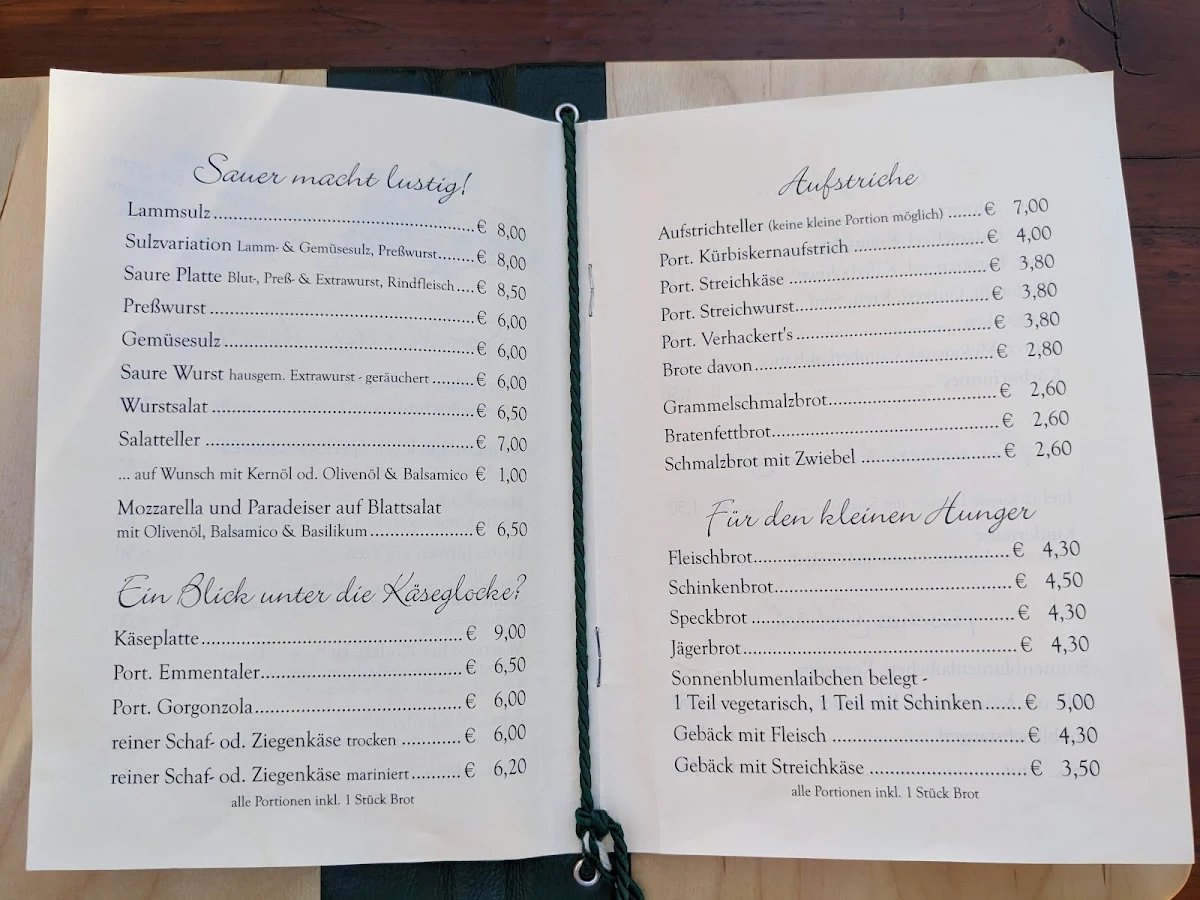 Sauer macht lustig!
Lammsulz................................................€ 8,00
Sulzvariation Lamm- & Gemüsesulz, Preßwurst........€ 8,00
Saure Platte Blut-, Preß- & Extrawurst, Rindfleisch....€ 8,50
Preßwurst ................................................€ 6,00
Gemüsesulz ................................................€ 6,00
Saure Wurst hausgem. Extrawurst - geräuchert.........€ 6,00
Wurstsalat ................................................€ 6,50
Salatteller ................................................€ 7,00
... auf Wunsch mit Kernöl od. Olivenöl & Balsamico € 1,00
Mozzarella und Paradeiser auf Blattsalat
mit Olivenöl, Balsamico & Basilikum....................€ 6,50
Ein Blick unter die Käseglocke?
Käseplatte................................................€ 9,00
Port. Emmentaler........................................€ 6,50
Port. Gorgonzola........................................€ 6,00
reiner Schaf- od. Ziegenkäse trocken ............€ 6,00
reiner Schaf- od. Ziegenkäse mariniert..........€ 6,20
alle Portionen inkl. 1 Stück Brot
Aufstriche
Aufstrichteller (keine kleine Portion möglich) .......€ 7,00
Port. Kürbiskernaufstrich ..........................€ 4,00
Port. Streichkäse ........................................€ 3,80
Port. Streichwurst........................................€ 3,80
Port. Verhackert's........................................€ 3,80
Brote davon................................................€ 2,80
Grammelschmalzbrot..................................€ 2,60
Bratenfettbrot..............................................€ 2,60
Schmalzbrot mit Zwiebel ............................€ 2,60
Für den kleinen Hunger
Fleischbrot..................................................€ 4,30
Schinkenbrot................................................€ 4,50
Speckbrot ..................................................€ 4,30
Jägerbrot....................................................€ 4,30
Sonnenblumenlaibchen belegt -
1 Teil vegetarisch, 1 Teil mit Schinken.......€ 5,00
Gebäck mit Fleisch ....................................€ 4,30
Gebäck mit Streichkäse ................................€ 3,50
alle Portionen inkl. 1 Stück Brot